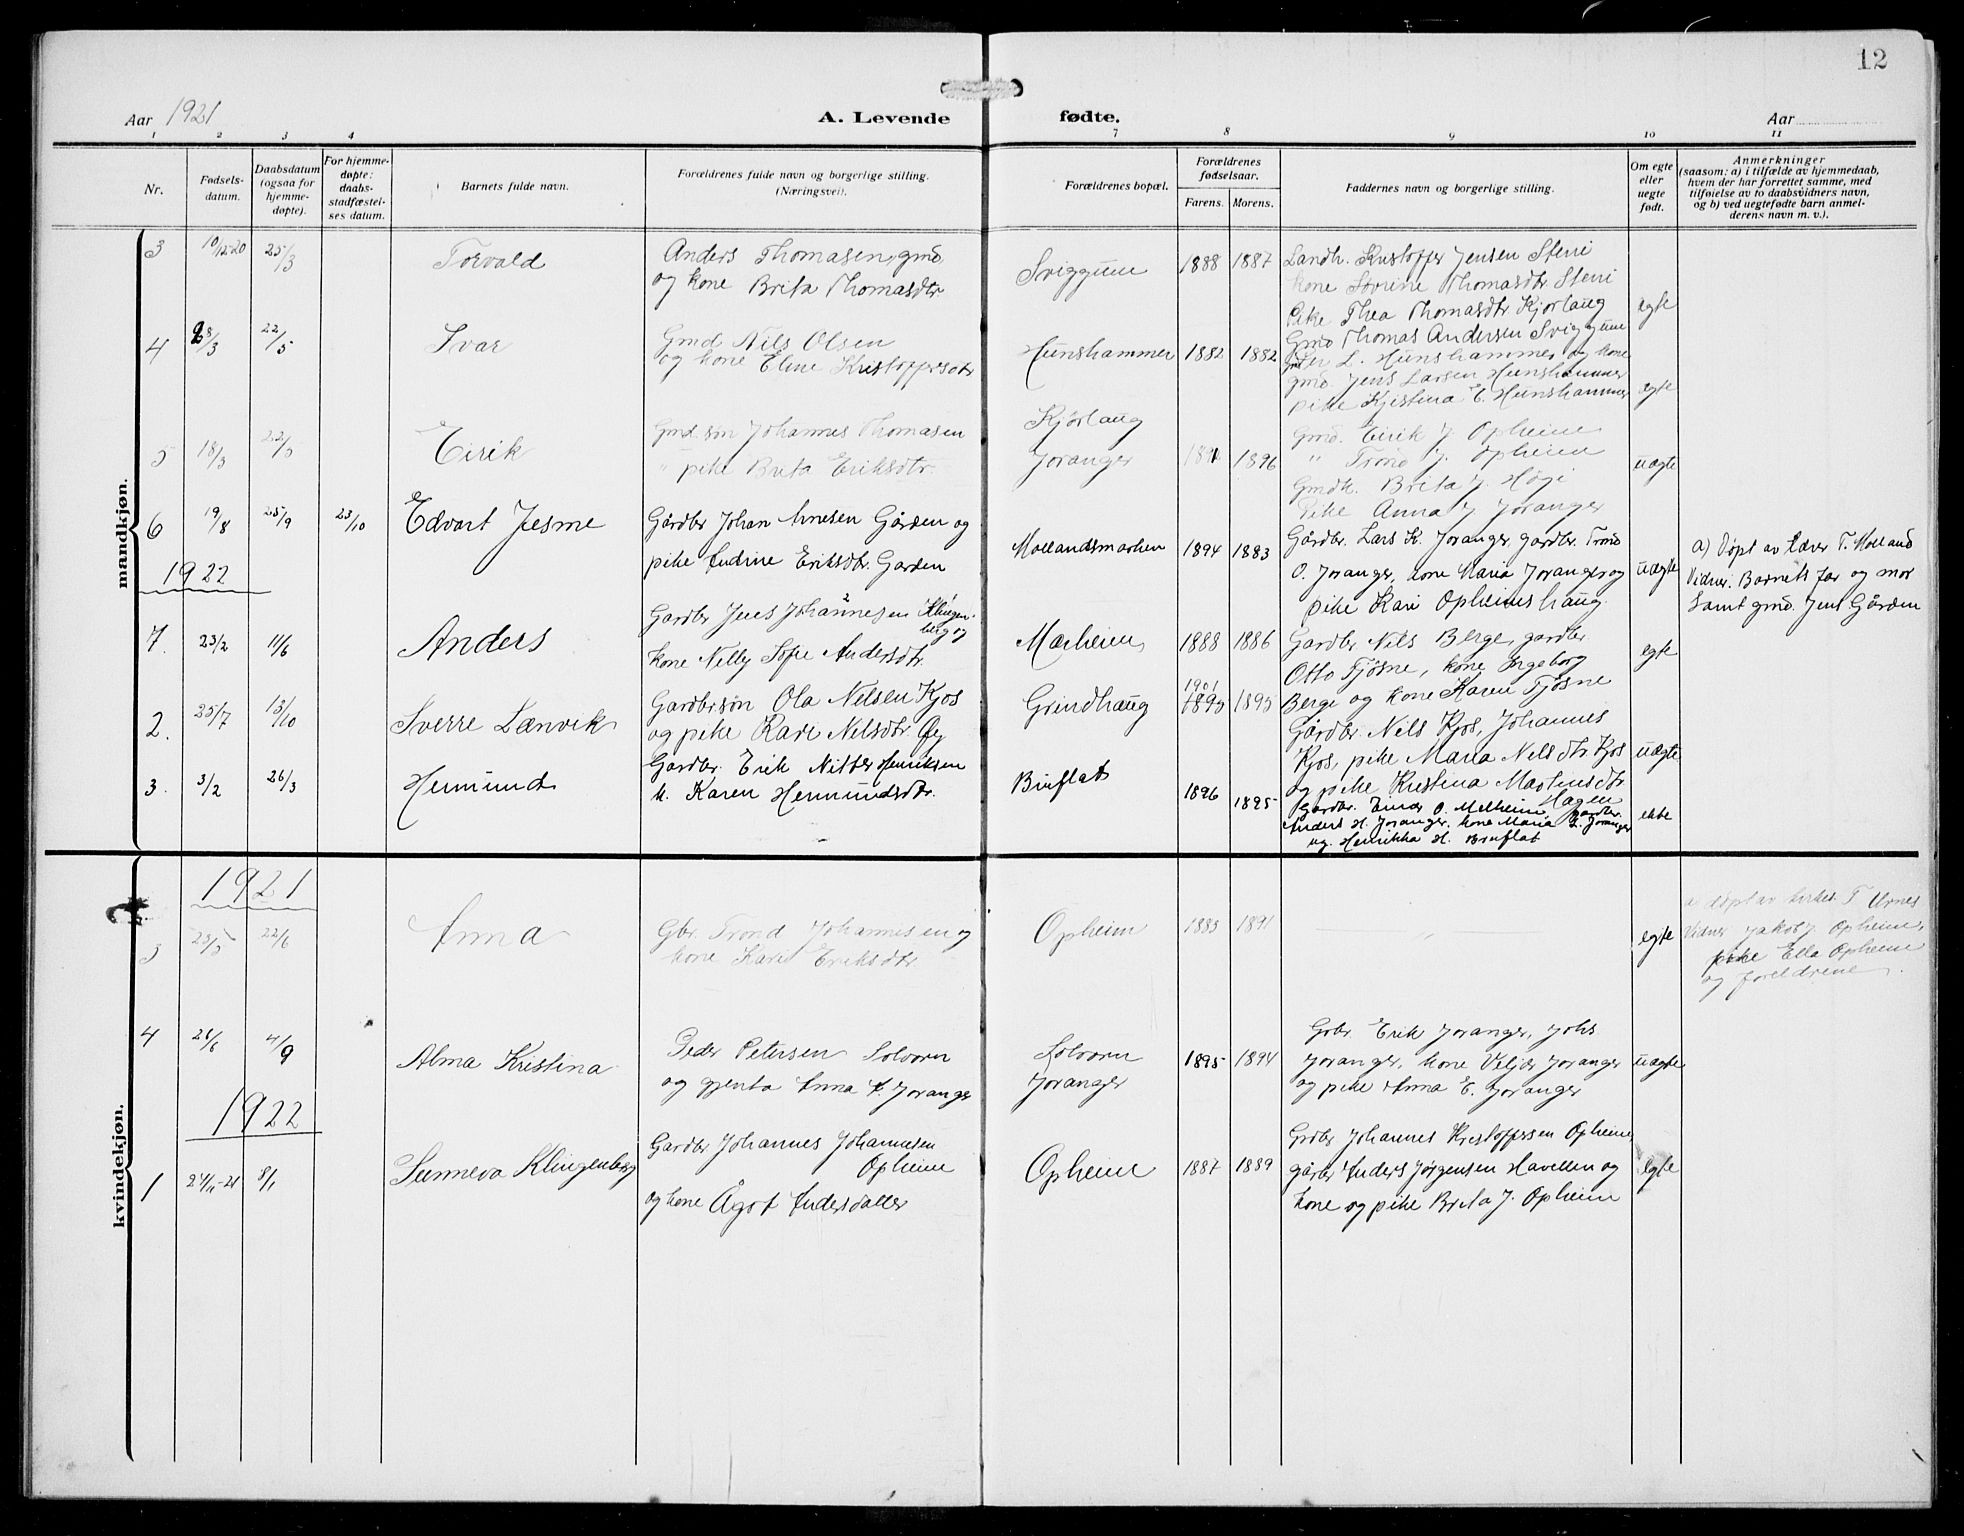 12
Aar 1921
A. Levende fødte.
Aar
1 2 3 4 7 8 9 10 11
Nr.
Fødsels-
datum.
Daabsdatum
(ogsaa for
hjemme-
døpte).
For hjemme-
døpte:
daabs-
stadfæstel-
ses datum.
Barnets fulde navn.
Forældrenes fulde navn og borgerlige stilling.
(Næringsvei).
Forældrenes bopæl.
Forældrenes
fødselsaar.
Farens. Morens.
Faddernes navn og borgerlige stilling.
Om egte
eller
uegte
født.
Anmerkninger
(saasom: a) i tilfælde av hjemmedaab,
hvem der har forrettet samme, med
tilføielse av to daabsvidners navn,
og b) ved uegtefødte barn anmel-
derens navn m. v.).
mandkjøn.
3 10/12-20 25/3 Torvald
Anders Thomasen, gmd
og kone Brita Thomasdtr
Sviggum 1888 1887
Landh. Kristoffer Jensen Sterri
kone Sovrine Thomasdtr Sterri
Pike Thea Thomasdtr Kjørlaug
Gmd Thomas Andersen Sviggum
egte
4 28/3 22/5 Ivar
Gmd Nils Olsen
og kone Eline Kristoffersdtr
Hunshammer 1882 1882
L. Hunshammer og kone
gmd. Jens Larsen Hunshammer
pike Kjistina E. Hunshammer
egte
5 18/3 22/5 Eirik
Gmd.søn Johannes Thomasen
" pike Brita Eriksdtr.
Kjørlaug
Joranger
1891 1896
Gmd. Eirik J. Opheim
" Trond J. Opheim
Gmdk. Brita J. Høgi
Pike Anna J Joranger
uegte
6 19/8 25/9 23/10 Edvart Jesme
Gårdbr Johan Arnesen Gården og
pike Andrine Eriksdtr. Garden
Mollandsmarken 1894 1883
Gårdbr. Lars K. Joranger, gardbr. Trond
O. Joranger, kone Maria Joranger og
pike Kari Opheimshaug.
uægte
a) Døpt av Lærer T. Molland
Vidner: Barnets far og mor
samt gmd. Jens Gården
1922
7. 23/2 11/6 Anders
Gardbr Jens Johannesen Klingen-
berg og
kone Nelly Sofie Andersdtr
Marheim 1888 1886
Gardbr Nils Berge, gardbr
Otto Tjøsne, kone Ingeborg
Berge og kone Karen Tjøsne
egte
2. 25/7 15/10 Sverre Lænvik
Gardbrsøn Ola Nilsen Kjos
og pike Kari Nilsdtr. Øy
Grindhaug 1901
1895 1895
Gårdbr. Nils Kjos, Johannes
Kjos, pike Maria Nilsdtr Kjos
og pike Kristina Martinsdtr
Hagen
uægte
3. 3/2 26/3 Hermund
Gardbr. Erik Nitter Henriksen
k. Karen Hermundsdtr.
Bruflat 1896 1895
Gardbr. Einar O. Melheim, gardbr.
Anders H. Joranger, kone Maria L. Joranger
og Henrikka H. Bruflat
ekte
kvindekjøn.
1921
3 23/5 22/6 Anna
Gbr. Trond Johannesen og
kone Kari Eriksdtr
Opheim 1885 1891
egte
a) døpt av kirkes. T Urnes
Vidner Jakob J. Opheim,
pike Ella Opheim
og foreldrene
4 26/6 4/9 Alma Kristina
Peder Petersen Solvorn
og gjenta Anna A. Joranger
Solvorn
Joranger
1895 1894
Grbr. Erik Joranger, Johs
Joranger, kone Veljer Joranger
og pike Anna E. Joranger
uægte
1922
1 24/11-21 8/1 Sunneva Klingenberg
Gardbr Johannes Johannesen
Opheim
og kone Ågot Andersdatter
Opheim 1887 1889
Grdbr Johannes Kristoffersen Opheim
gårbr Anders Jørgensen Havellen og
kone og pike Brita J. Opheim
egte